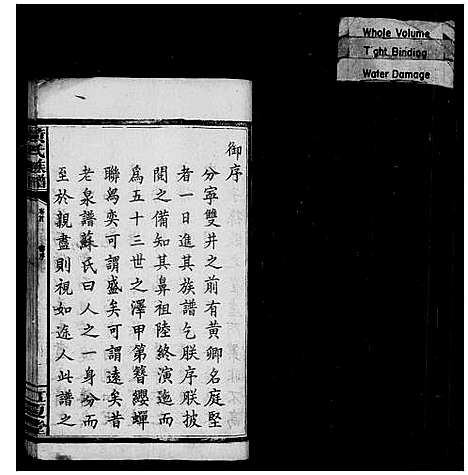 Whole Volume
Tight Binding
Water Damage
御序
分寧雙井之前有黄卿名庭堅
者一日進其族譜乞朕序朕披
閱之備知其鼻祖陸終演迤而
為五十三世之澤甲第簪纓蟬
聯舄奕可謂盛矣可謂遠矣昔
老泉譜蘇氏曰人之一身分而
至於親盡則視如途人此譜之